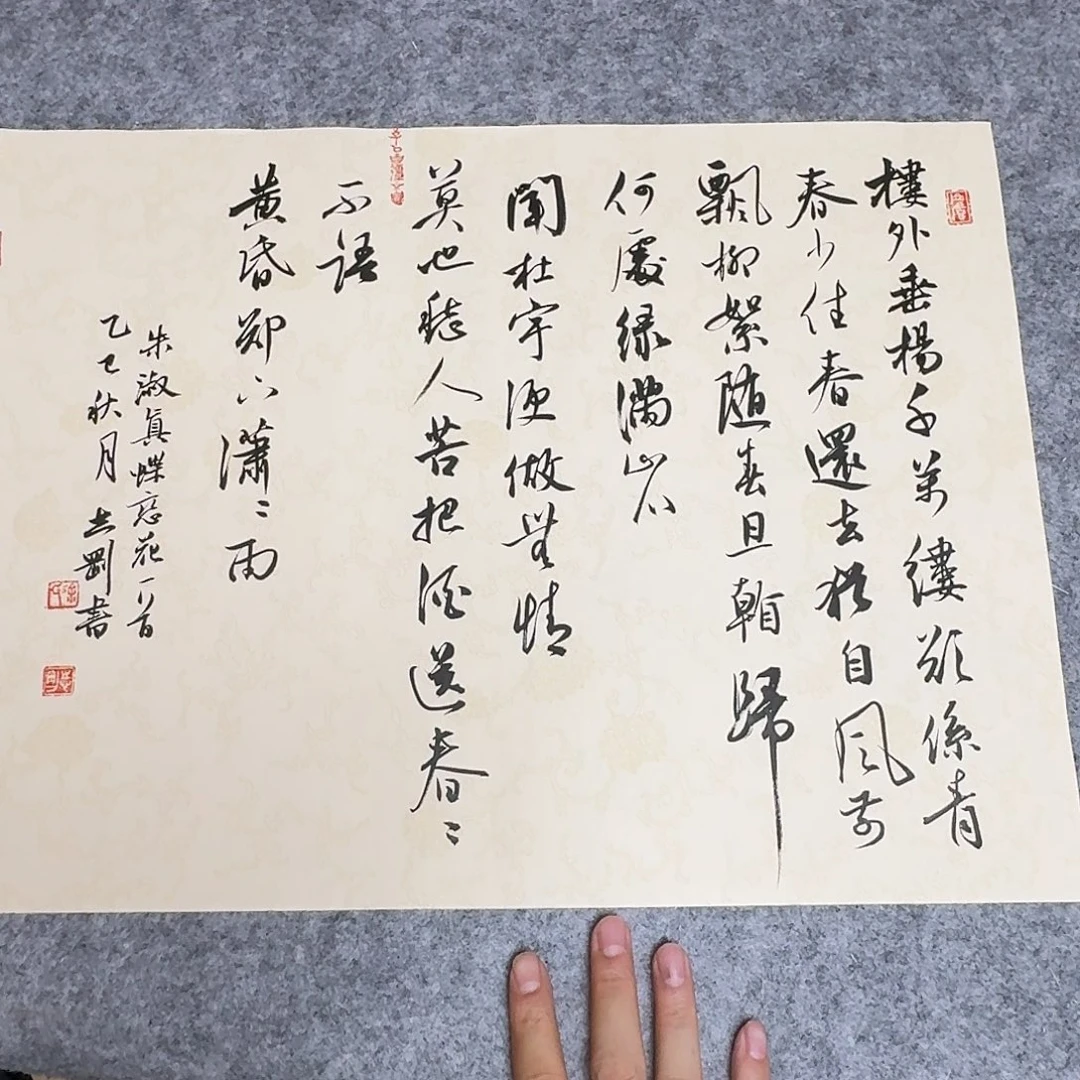 樓外垂楊千萬縷欲係青
春少住春還去猶自風前
飄柳絮随春且看歸
何處緑滿山川
聞杜宇便做無情
莫也愁人苦把酒送春〻
不語
黄昏却下瀟〻雨
朱淑真蝶恋花一首
乙巳秋月志剛書